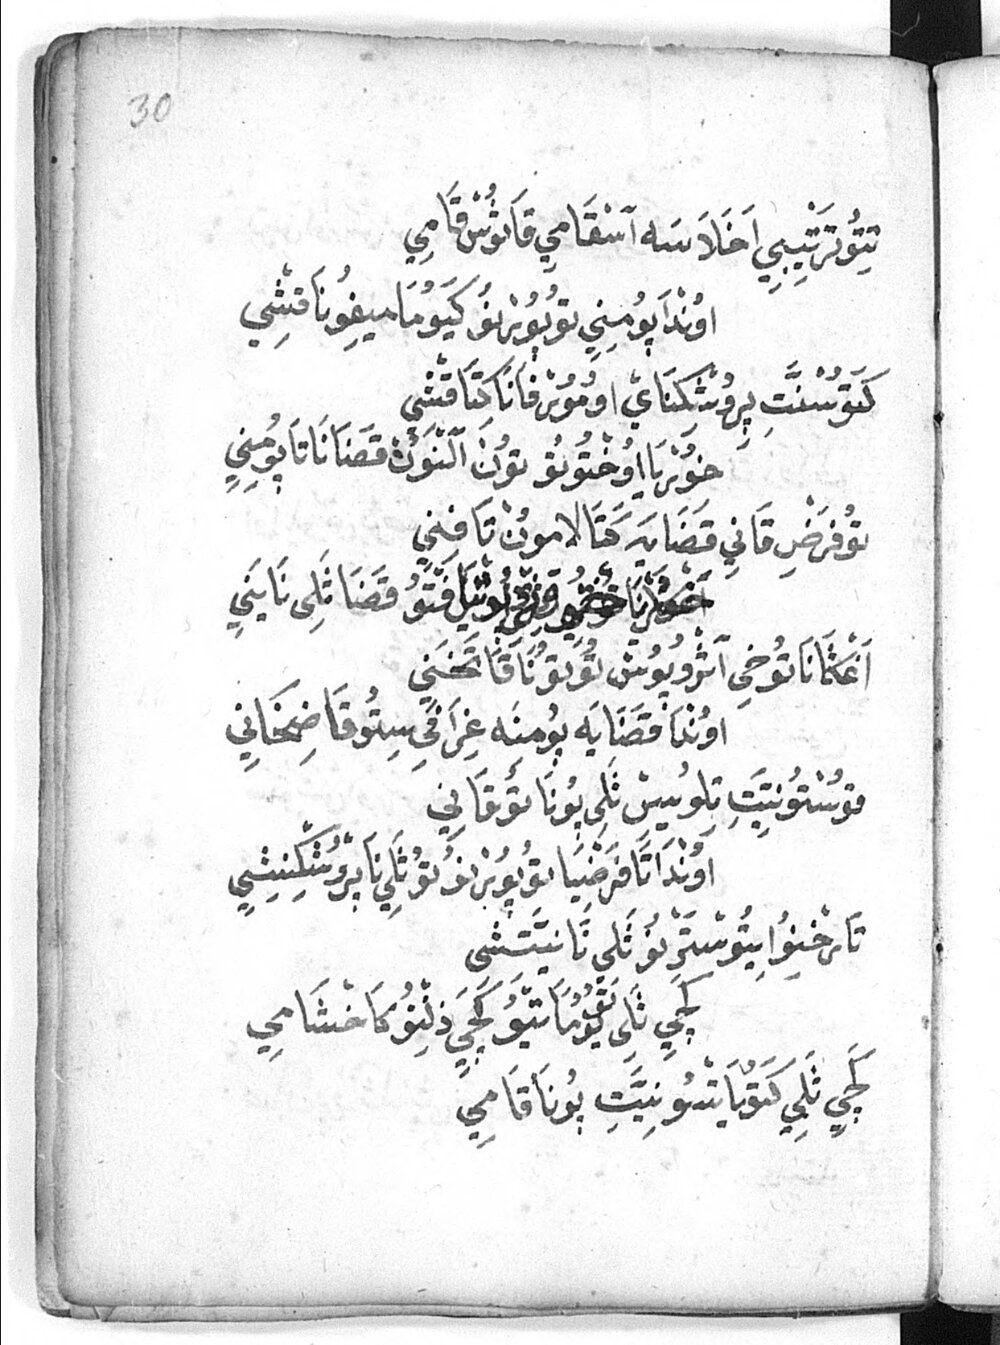 30
تِتُوتَرْتِيبِي اَخَلَاسَه آسْقَامِي قَاتُوسْ قَامِي
اوُنْدَا پُومِنِي تُوپُويْرْنُو كَيَوُمَا مِيفِونَاقْشِي
كَيَقُوسُنَّتِ پِرُوشْكِنَايْ اوُمُويْرْفَانَا كَتَاقْشِي
خُويْرْيَا اوُخْتُوتُو تُونْ آلنَّوَنْ قَضَانَا تَاپُومِنِي
تُوفَرَضِ قَانِي قَضَايَه كَتَالا مُونْ تَافِنِي
فَتُو قَضَا ثَلِي نَايَنِي
اَنْعَثْمَانَا تُوخِي آتْرُوپُويْسْ تُويُونَا قَاتَخَنِي
اوُنْدَا قَضَايَه پُومِنَه غِرَافِي سِتُوقَا ضِحَانِي
مُوسْتُونِيَّتِ تِلُويسْ ثَلِي پُونَا تُوقَانِي
اوُنْدَاتَا فَرَضِيَا تُوپُويْرْنُو تُو ثَلِي نَاپْرُوشْكِنِشِي
تَارْخِنِوُا يِتُوسْتَرْنُو ثَلِي نَا نِيَّتَشِي
كَجِّي ثَلِي قُويُومَا تْيُو كَجِّي ذِلِنُو كَاخْشَامِي
كَجِّي ثَلِي كَيَقُويَا تْسُونِيَّتِ پُونَا قَامِي